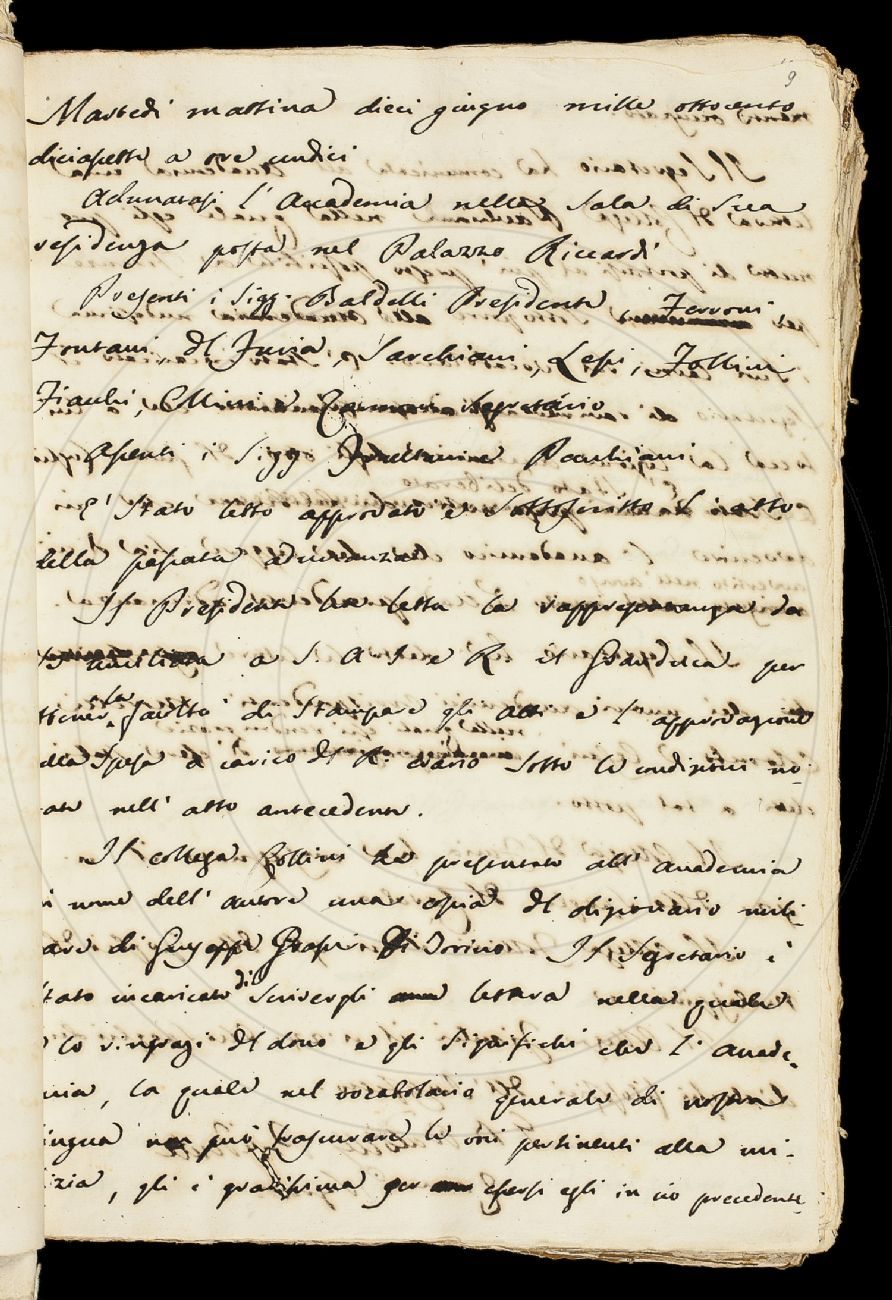 9
Martedì mattina dieci giugno mille ottocento
diciassette a ore undici
Adunatasi l'Accademia nella Sala di Sua
residenza posta nel Palazzo Riccardi
Presenti i Sigg. Baldelli Presidente, Ferroni,
Fontani, del Furia, Sarchiani, Lessi, Follini
Fiacchi, Collini e Zannoni Segretario
Assenti i Sigg Panchiani
E' Stato letto approvato e Sottoscritto l'atto
della passata adunanza
Il Presidente ha letta la rappresentanza da
a S. A. I. e R. il Granduca per
ttener la facoltà di Stampare gli atti e l'approvazione
della Spesa a carico del R. erario Sotto le condizioni no-
ate nell'atto antecedente.
Il collega Collini ha presentato all'accademia
i nome dell'autore una copia del dizionario mili-
are di Giuseppe Grassi di Torino. Il Segretario è
tato incaricato di Scrivergli lettera nella quale
lo ringrazi del dono e gli Significhi che l'accade-
mia, la quale nel vocabolario generale di nostra
ingua non può trascurare le voci pertinenti alla mi-
izia, gli è gratissima per essersi egli in ciò precedente-